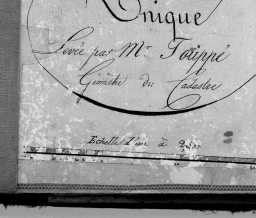 Unique
Levée par Mr
Géomètre du Cadastre
Echelle d'un à